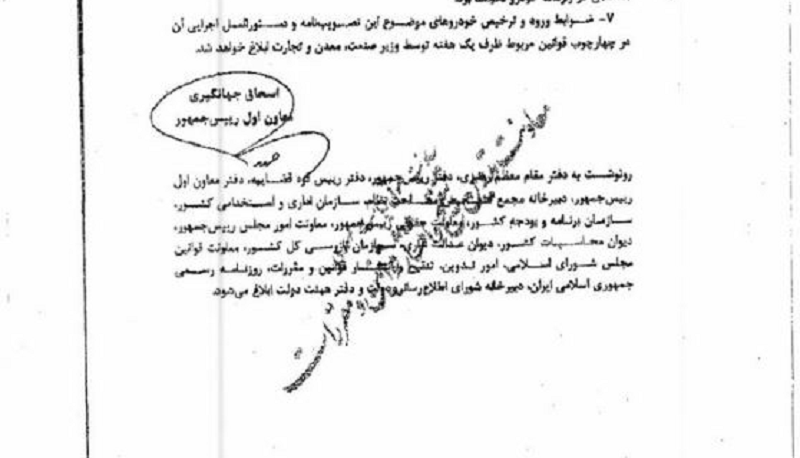 ۷- شرایط ورود و ترخیص خودروهای موضوع این تصویب‌نامه و دستورالعمل اجرایی آن
در چهارچوب قوانین مربوط ظرف یک هفته توسط وزیر صنعت، معدن و تجارت ابلاغ خواهد شد.
اسحاق جهانگیری
معاون اول رییس‌جمهور
رونوشت به دفتر مقام معظم رهبری، دفتر رییس‌جمهور، دفتر رییس قوه قضاییه، دفتر معاون اول
رییس‌جمهور، دبیرخانه مجمع تشخیص مصلحت نظام، سازمان اداری و استخدامی کشور،
سازمان برنامه و بودجه کشور، معاونت حقوقی رییس‌جمهور، معاونت امور مجلس رییس‌جمهور،
دیوان محاسبات کشور، دیوان عدالت اداری، سازمان بازرسی کل کشور، معاونت قوانین
مجلس شورای اسلامی، امور تدوین، تنقیح و انتشار قوانین و مقررات، روزنامه رسمی
جمهوری اسلامی ایران، دبیرخانه شورای اطلاع‌رسانی دولت و دفتر هیئت دولت ابلاغ می‌شود.